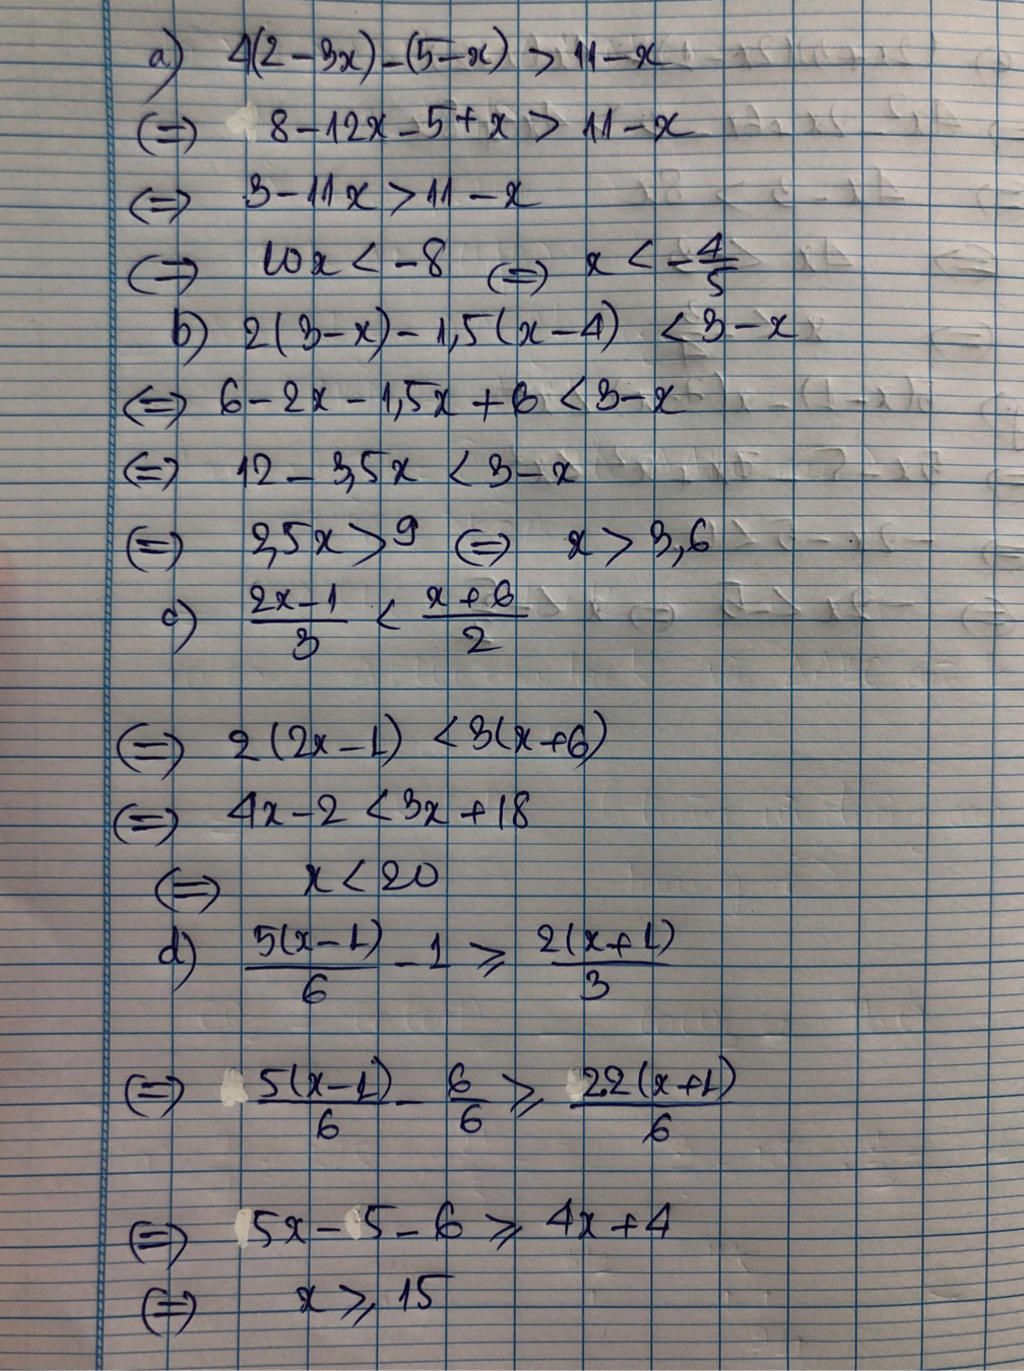 a) 4(2-3x)-(5-x) > 11-x
(=) 8-12x-5+x > 11-x
(=) 3-11x > 11-x
(=) 10x < -8 (=) x < -4/5
b) 2(3-x)-1,5(x-4) < 3-x
(=) 6-2x-1,5x+6 < 3-x
(=) 12-3,5x < 3-x
(=) 2,5x > 9 (=) x > 3,6
c) (2x-1)/3 < (x+6)/2
(=) 2(2x-1) < 3(x+6)
(=) 4x-2 < 3x+18
(=) x < 20
d) 5(x-1)/6 - 1 ⩾ 2(x+1)/3
(=) 5(x-1)/6 - 6/6 ⩾ 2.2(x+1)/6
(=) 5x-5-6 ⩾ 4x+4
(=) x ⩾ 15